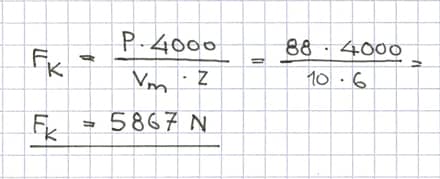 F_K = P · 4000 / V_m · Z = 88 · 4000 / 10 · 6 =
F_K = 5867 N